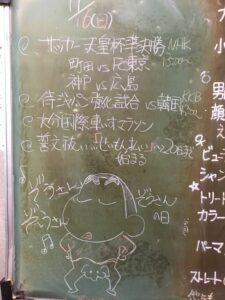 11/16(日)
サッカー天皇杯準決勝 NHK
町田 vs FC東京
神戸 vs 広島
侍ジャパン強化試合 vs 韓国 KKB
大分国際車いすマラソン
誓文払い
始まる
ぞうさん
ぞうさん
ぞうさん
の日
小
男
顔
ビュー
シャン
トリート
カラー
パーマ
ストレート